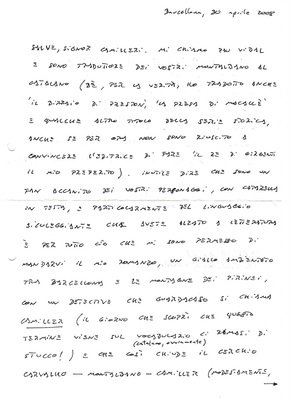 Barcellona, 20 aprile 2008
SALVE, SIGNOR CAMILLERI. MI CHIAMO PAU VIDAL
E SONO TRADUTTORE DEI VOSTRI MONTALBANO AL
CATALANO (BÈ, PER LA VERITÀ, HO TRADOTTO ANCHE
'IL BIRRAIO DI PRESTON', 'LA PRESA DI MACALLÈ'
E QUALCHE ALTRO TITOLO DELLA SERIE STORICA,
ANCHE SE PER ORA NON SONO RIUSCITO A
CONVINCERE L'EDITRICE DI FARE 'IL RE DI GIRGENTI'
IL MIO PREFERITO). INUTILE DIRE CHE SONO UN
FAN ACCANITO DEI VOSTRI PERSONAGGI, CON CATARELLA
IN TESTA, E PARTICOLARMENTE DEL LINGUAGGIO
SICULEGGIANTE CHE AVETE ALZATO A LETTERATURA
E PER TUTTO CIÒ CHE MI SONO PERMESSO DI
MANDARVI IL MIO ROMANZO, UN GIALLO AMBIENTATO
TRA BARCELLONA E LE MONTAGNE DEI PIRINEI,
CON UN DETECTIVE CHE GUARDACASO SI CHIAMA
CAMILLER (IL GIORNO CHE SCOPRÌ CHE QUESTO
TERMINE VIENE SUL VOCABOLARIO CI RIMASI DI
(catalano, ovviamente)
STUCCO!) E CHE COSÌ CHIUDE IL CERCHIO
CARVALHO — MONTALBANO — CAMILLER (MODESTAMENTE,
→